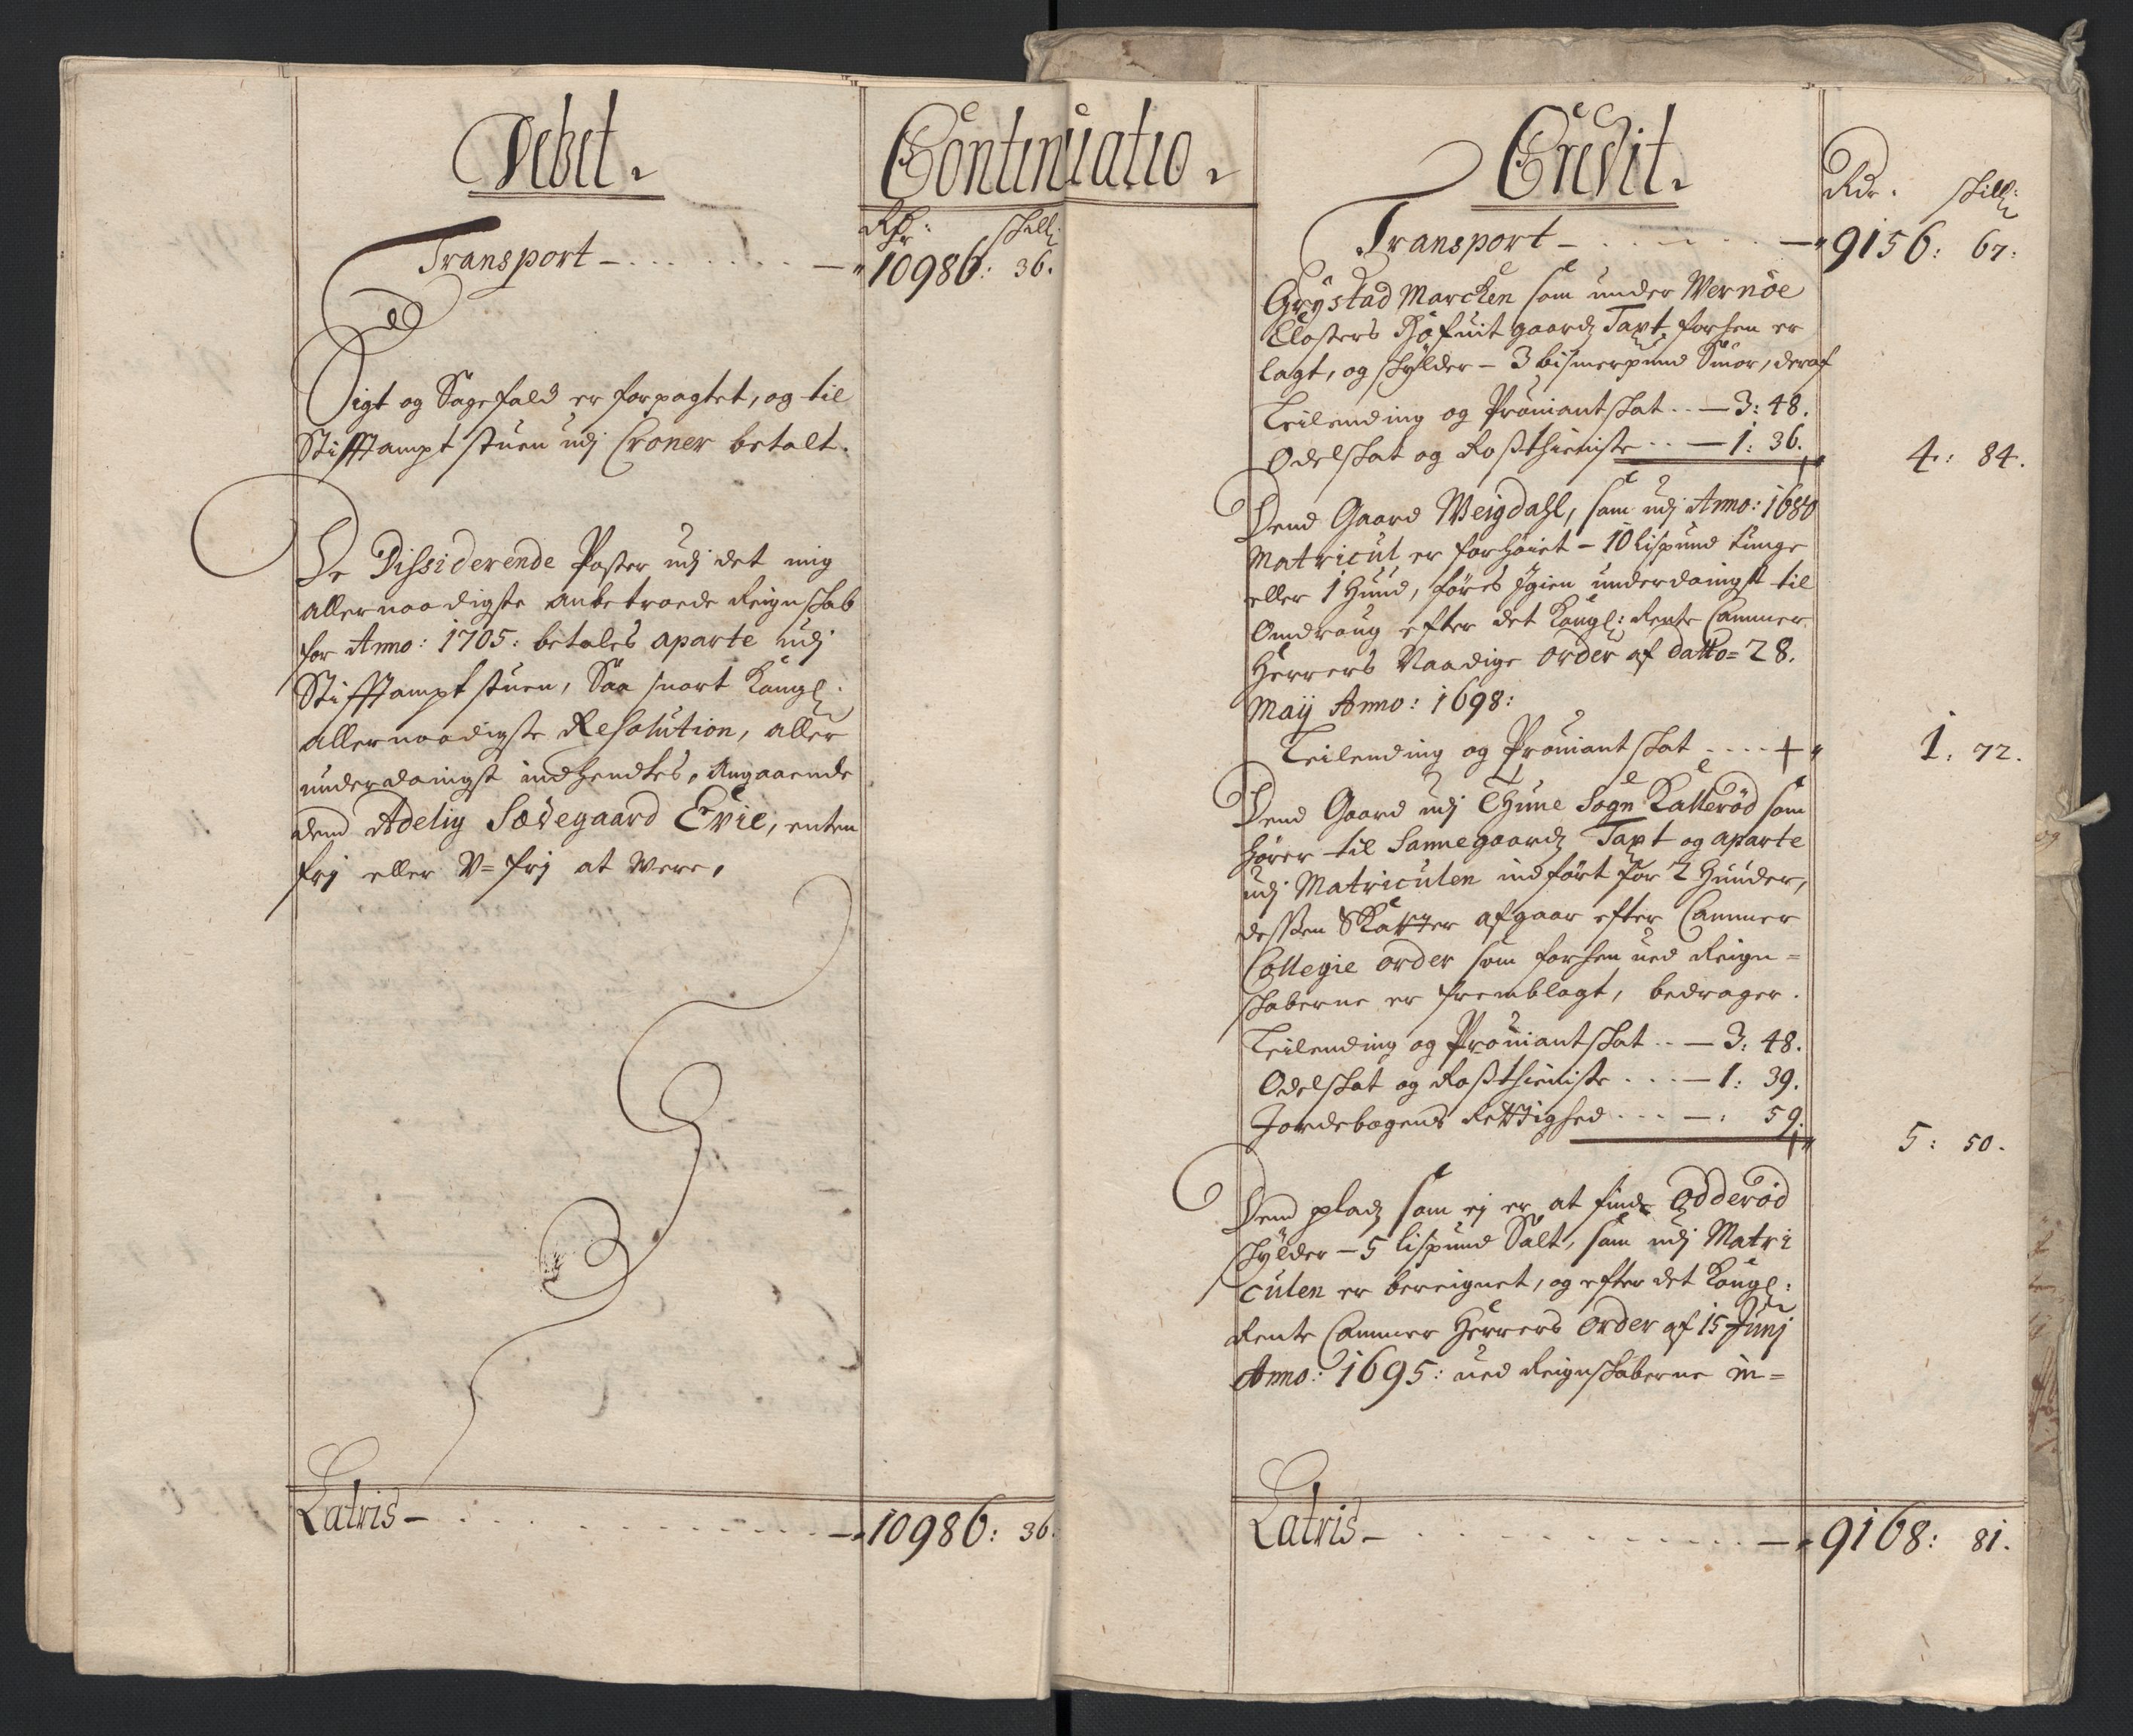 Debet.
Continuatio.
Rdr: skill:
Transport — 10986: 36.
Sigt og Sagefald er forpagtet, og til
Stifftampt stuen udj Croner betalt.
De Dissiderende Poster udj det mig
allernaadigste anbetroede Reignskab
for Anno: 1705: betales aparte udj
Stifftampt stuen, Saa snart Kongl:
allernaadigste Resolution, aller
underdanigst indhendtes, Angaaende
dend Adelig Sædegaard Evie, enten
frj eller V=frj at were,
Latris — 10986: 36.
Credit.
Rdr. skill:
Transport — 9156: 67:
Grystad Marcken som under Wernøe
Closters Hofuit gaardz Taxt forhen er
lagt, og skylder — 3 bismerpund Smør, deraf
Leilending og Prouiantskat — 3: 48.
Odelskat og Rosthieniste — 1: 36.
4: 84.
Dend Gaard Weigdahl, som udj Anno: 1680
Matricul er forhøiet — 10 lispund tunge
eller 1 Hund, føres Igien underdanigst til
Omdraug efter det Kongl: Rente Cammer
Herrers Naadige order af datto = 28.
Maij Anno: 1698:
Leilending og Prouiant skat — 1. 72.
Dend Gaard udj Thune Sogn Katterød som
hører til Sannegaardz Taxt og aparte
udj Matriculen indført for 2 Hunder,
dessen Skatter afgaar efter Cammer
Collegie order som forhen ued Reign=
skaberne er fremblagt, bedrager.
Leilending og Prouiantskat — 3: 48.
Odelskat og Rosthieniste — 1: 39.
Jordebogens Rettighed — : 59.
5: 50.
Dend pladz som ej er at finde Odderød
skylder — 5 lispund Salt, som udj Matri
culen er bereignet, og efter det Kongl:
Rente Cammer Herrers order af 15 Junj
Anno: 1695: ued Reignskaberne in=
Latris — 9168: 81.